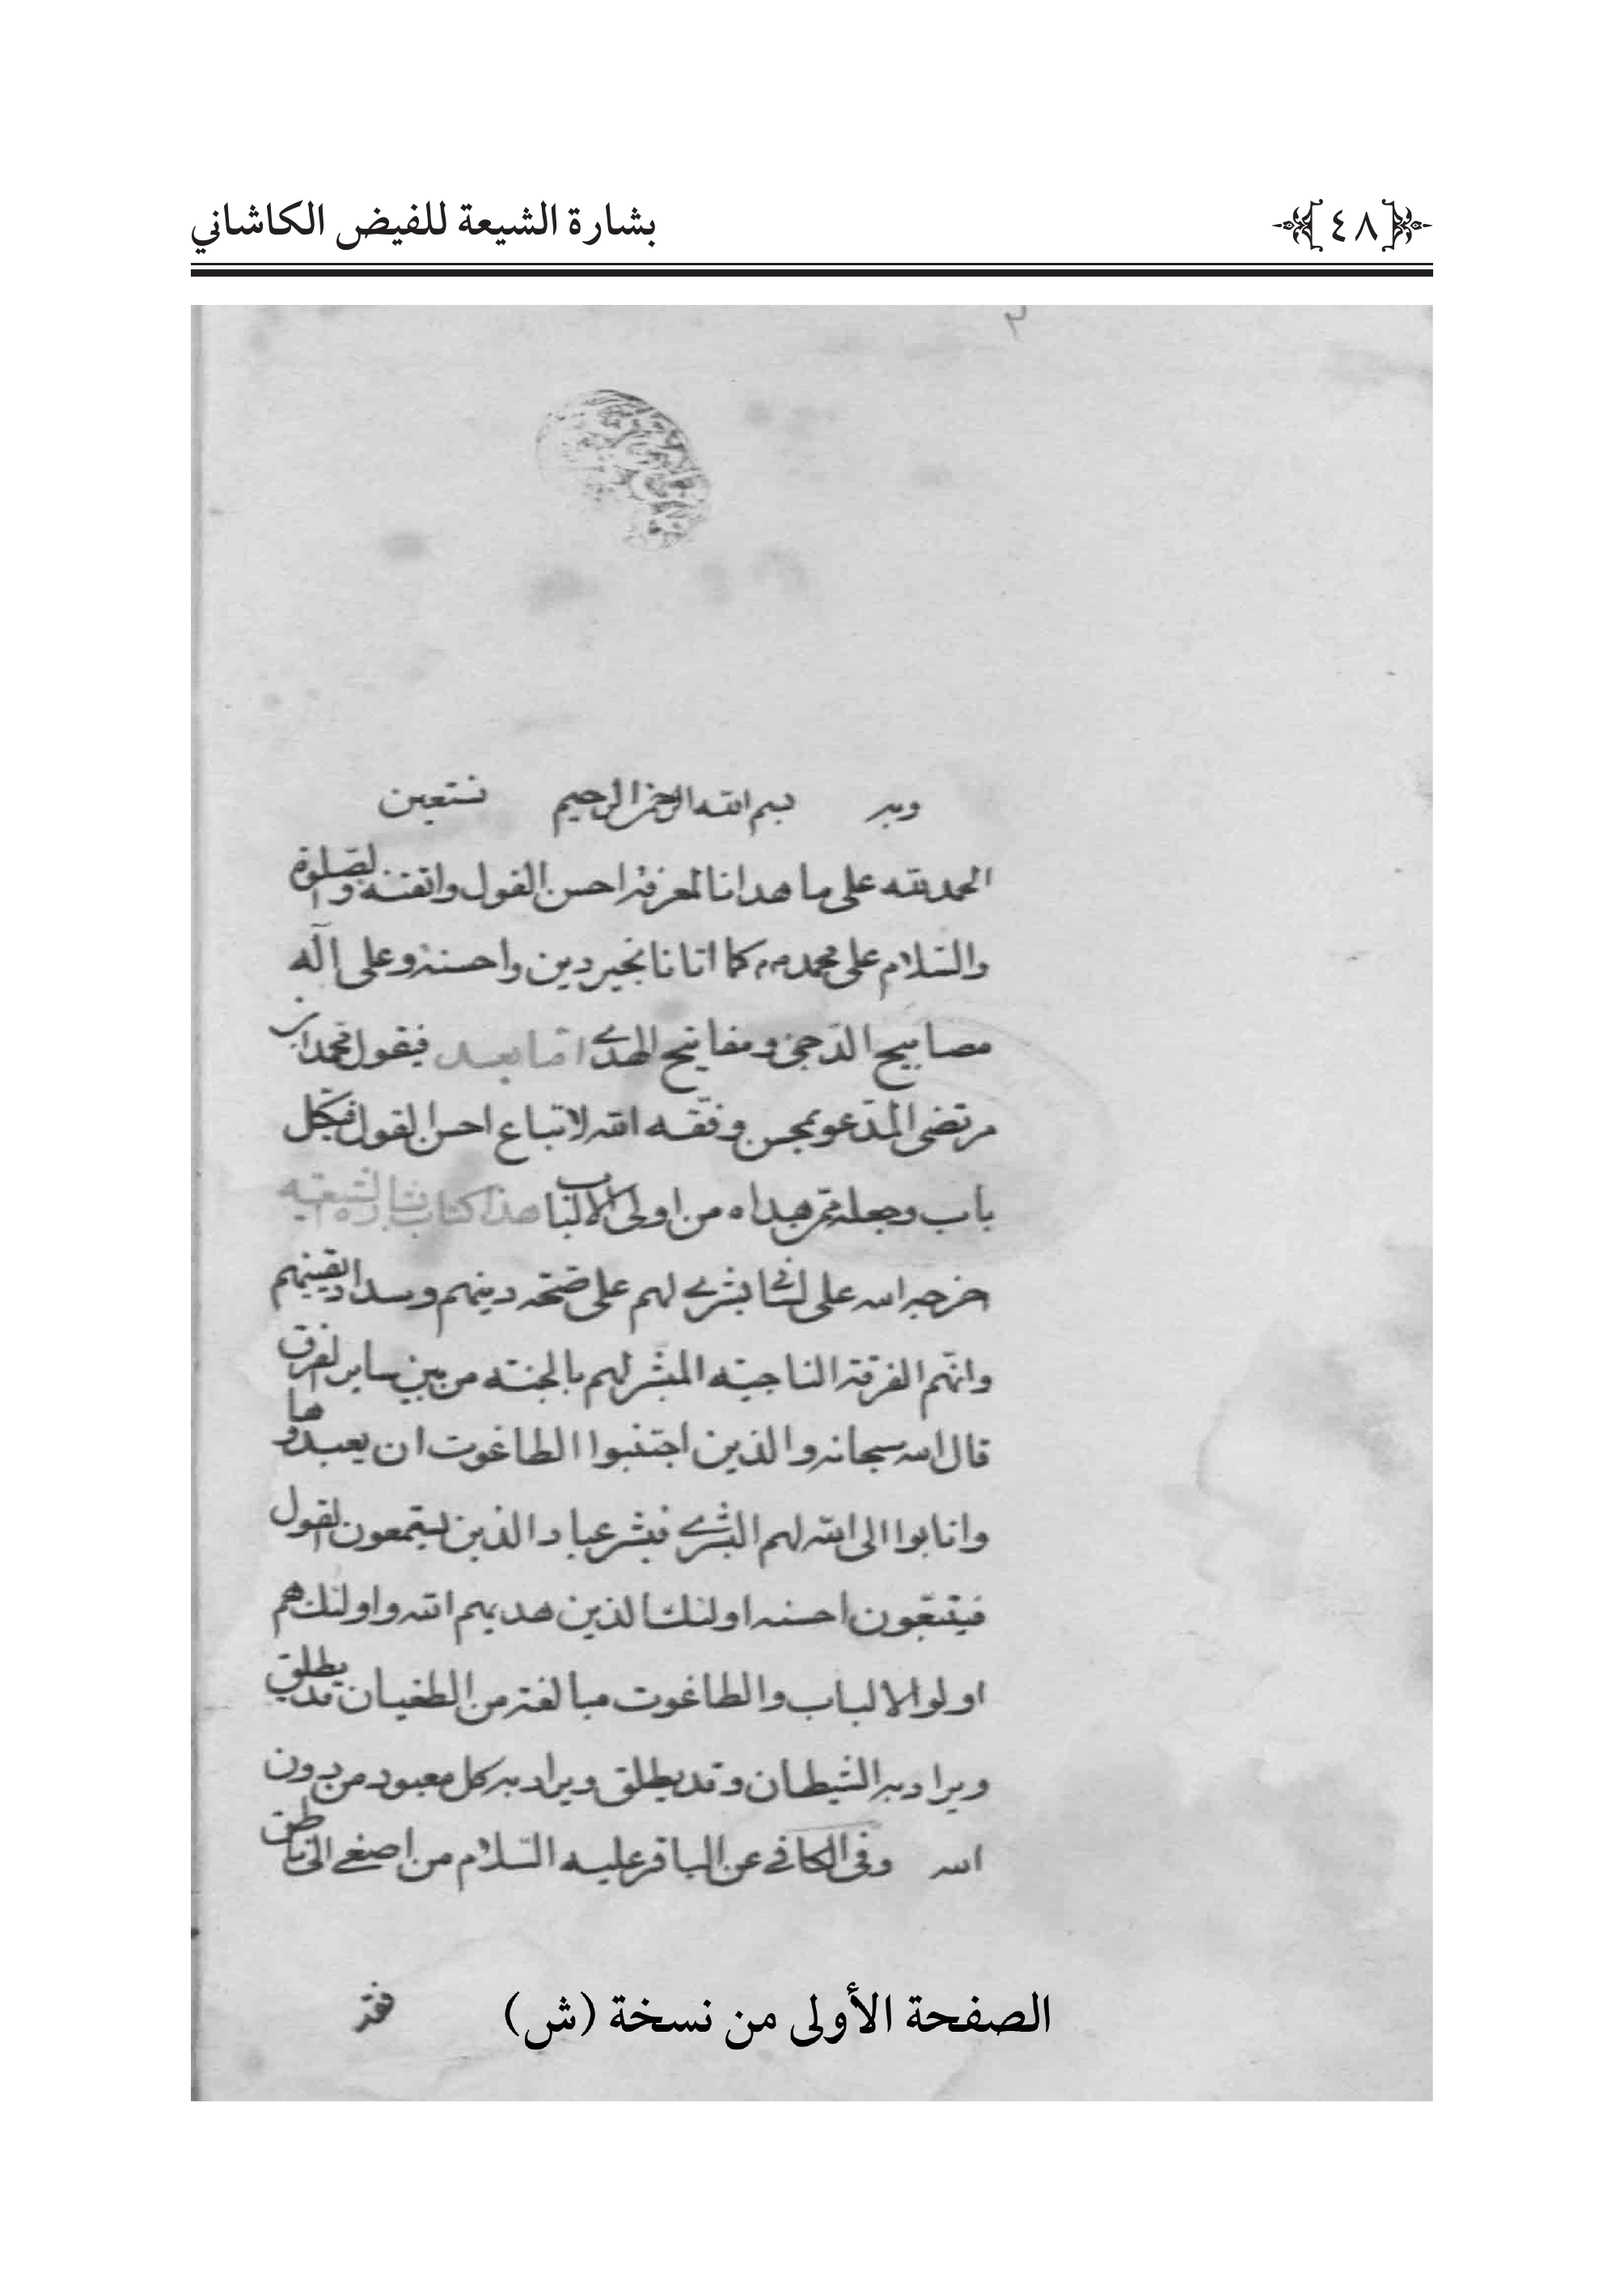 بشارة الشيعة للفيض الكاشاني
٤٨
٢
وبه بسم الله الرحمن الرحيم نستعين
الحمد لله على ما هدانا لمعرفة احسن القول واتقنه والصلوة
والسّلام على محمد كما اتانا بخير دين واحسنه وعلى آله
مصابيح الدّجى ومفاتيح الهدى امّا بعد فيقول محمد ابن
مرتضى المدّعو بمحسن وفّقه الله لاتباع احسن القول في كل
باب وجعله ممّن هداه من اولى الالباب هذا كتاب بشارة الشيعة
على لسانى بشرى لهم على صحّة دينهم وسداد يقينهم
وانّهم الفرقة الناجية المبشّر لهم بالجنّة من بين ساير الفرق
قال الله سبحانه والذين اجتنبوا الطاغوت ان يعبدوها
وانابوا الى الله لهم البشرى فبشّر عباد الذين يستمعون القول
فيتبّعون احسنه اولئك الذين هديهم الله واولئك هم
اولوا الالباب والطاغوت مبالغة من الطغيان قد يطلق
ويراد به الشيطان وقد يطلق ويراد به كل معبود من دون
الله وفى الكافى عن الباقر عليه السّلام من اصغى الى ناطق
فقد
الصفحة الأولى من نسخة (ش)